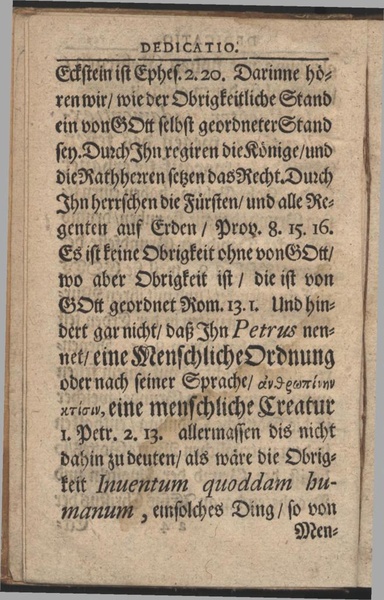 DEDICATIO.
Eckstein ist Ephes. 2. 20. Darinne hö-
ren wir/ wie der Obrigkeitliche Stand
ein von GOtt selbst geordneter Stand
sey. Durch Ihn regiren die Könige/ und
die Rathherren setzen das Recht. Durch
Ihn herrschen die Fürsten/ und alle Re-
genten auf Erden/ Prov. 8. 15. 16.
Es ist keine Obrigkeit ohne von GOtt/
wo aber Obrigkeit ist/ die ist von
GOtt geordnet Rom. 13. 1. Und hin-
dert gar nicht/ daß Ihn Petrus nen-
net/ eine Menschliche Ordnung
oder nach seiner Sprache/ ἀνθρωπίνην
κτίσιν, eine menschliche Creatur
1. Petr. 2. 13. allermassen dis nicht
dahin zu deuten/ als wäre die Obrig-
keit Inventum quoddam hu-
manum, ein solches Ding/ so von
Men-